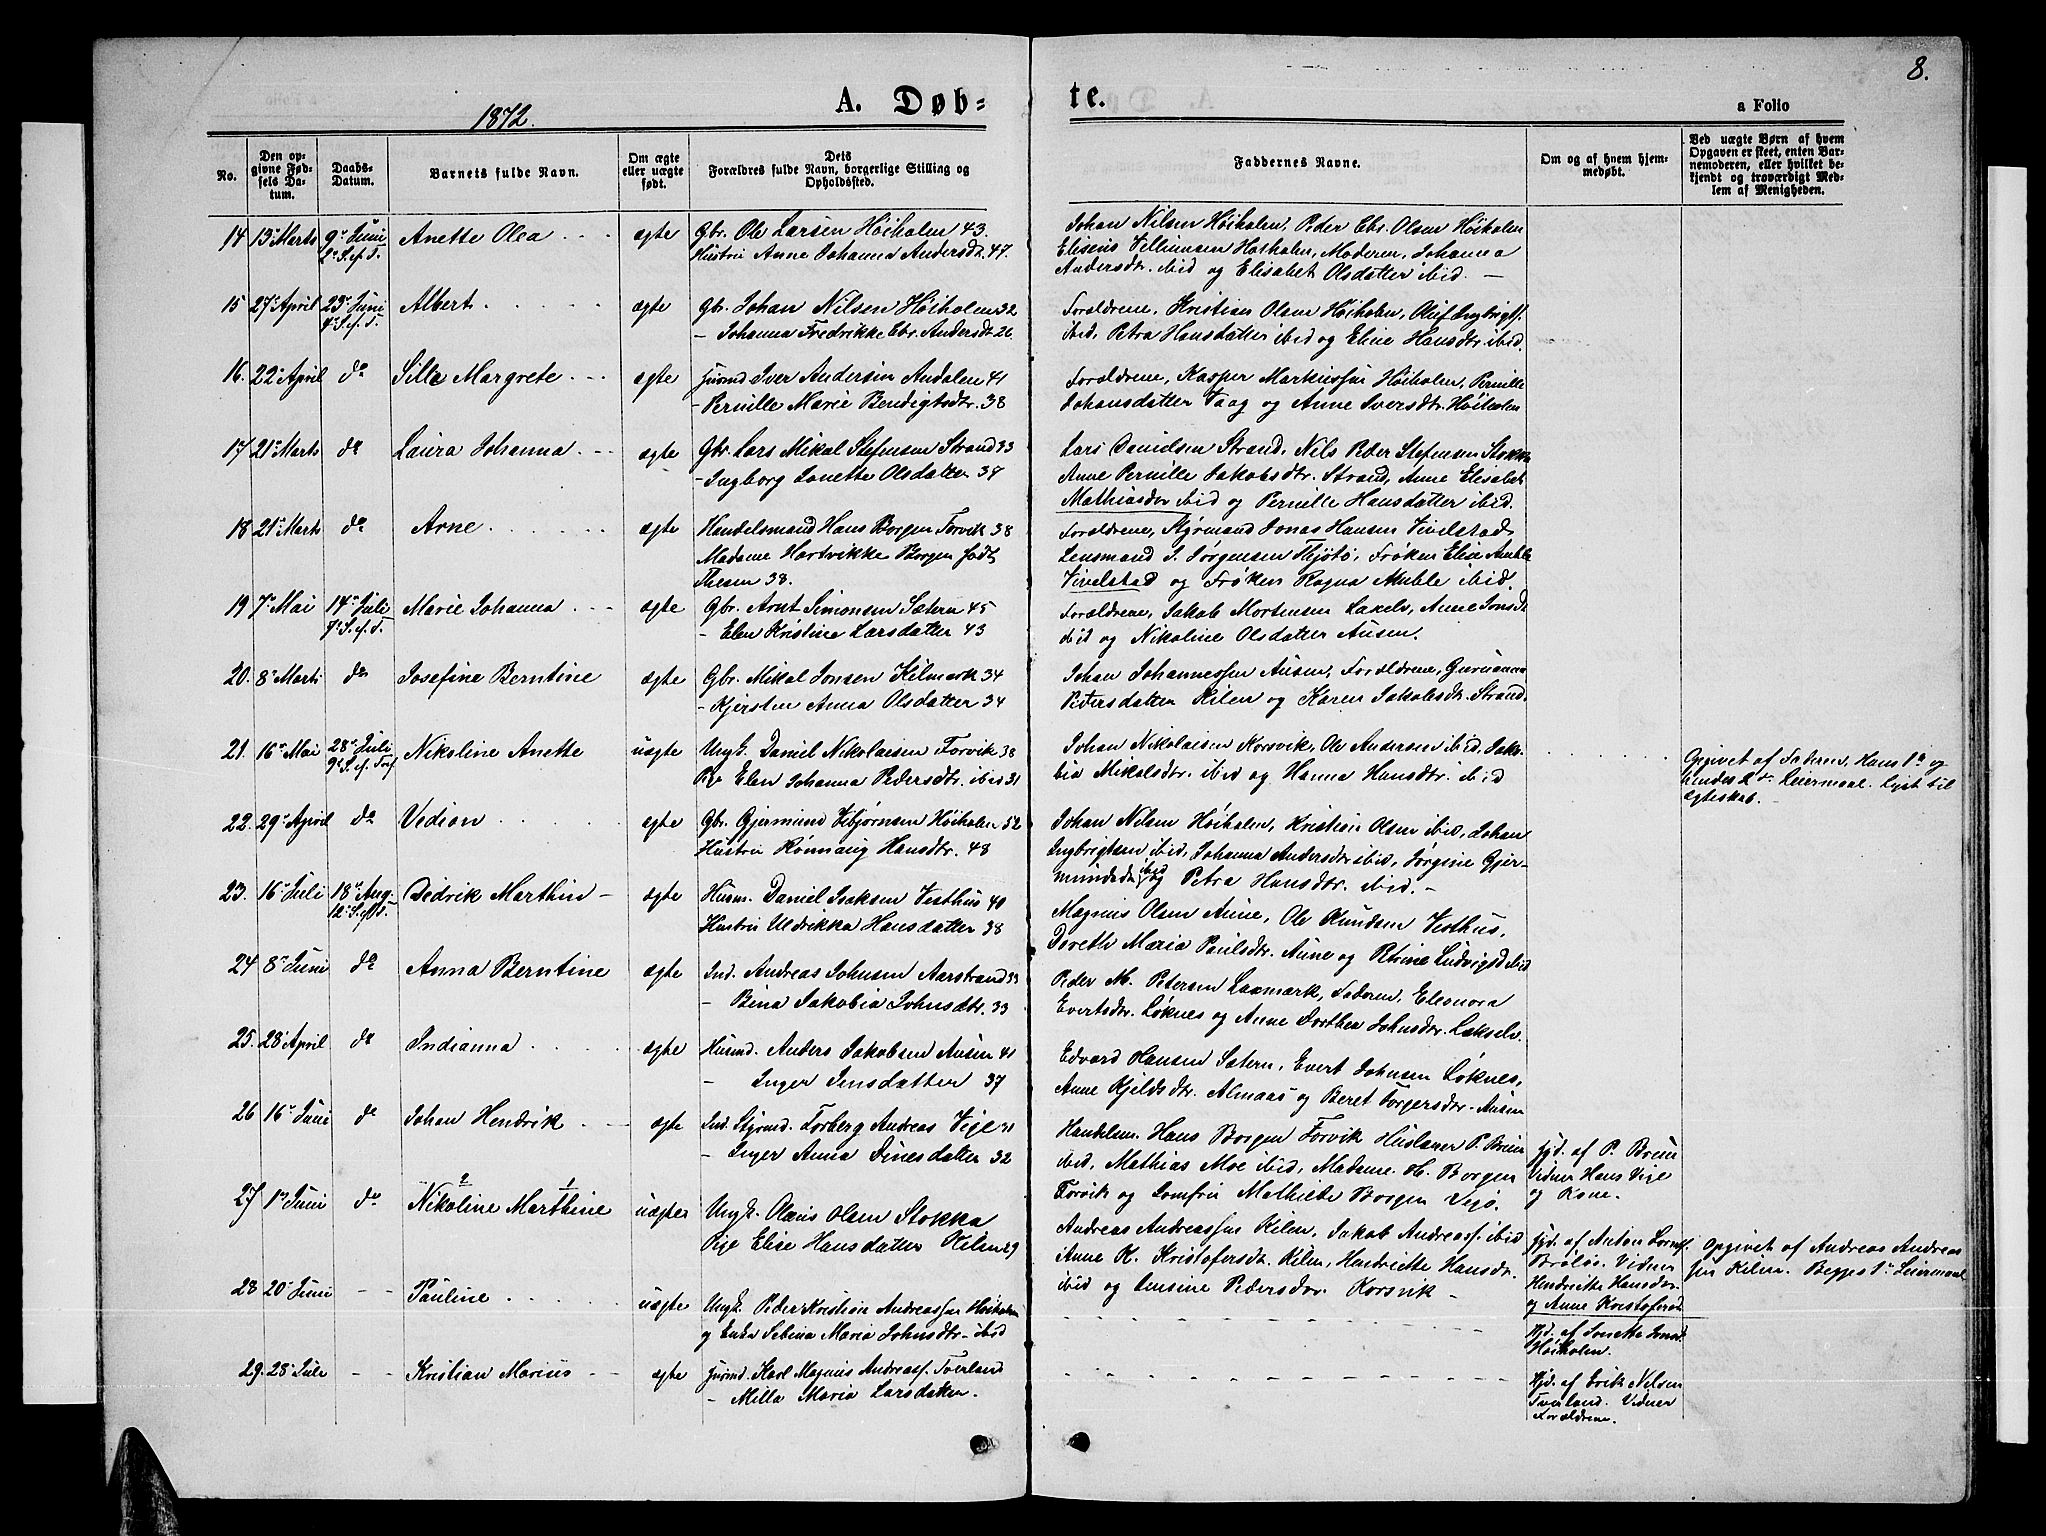 8.
1872.
A. Døb=
te.
a Folio
No.
Den op=
givne Fød=
sels Da=
tum.
Daabs=
Datum.
Barnets fulde Navn.
Om ægte
eller uægte
født.
Dets
Forældres fulde Navn, borgerlige Stilling og
Opholdssted.
Faddernes Navne.
Om og af hvem hjem=
medøbt.
Ved uægte Børn af hvem
Opgaven er skeet, enten Bar=
nemoderen, eller hvilket be=
kjendt og troværdigt Med=
lem af Menigheden.
14 13' Marts 9' Juni Anette Olea ægte Gbr. Ole Larsen Höiholm 43.
2' S. e. T. Hustru Anne Johanna Andersdr. 47.
Johan Nilsen Höiholm, Peder Ebr. Olsen Höiholm
Elisæus Villumsen Höiholm, Moderen, Johanna
Andersdtr. ibid og Elisabet Olsdatter ibid.
15 27' April 23' Juni Albert ægte Gbr. Johan Nilsen Höiholm 32
4' S. e. T. - Johanna Fredrikke Ebr. Andersdr. 26.
Forældrene, Kristian Olsen Höiholm, Oluf Ingbrigts.
ibid, Petra Hansdatter ibid og Eline Hansdtr. ibid.
16. 22' April do Sille Margrete ægte Iver Andersen Andalen 41
- Pernille Marie Bendigtsdtr. 38
Forældrene, Kasper Markussen Höiholm, Pernille
Johansdatter Vaag og Anne Iversdtr. Höiholm
17 21' Marts do Laura Johanna ægte Gbr. Lars Mikal Stefensen Strand 33
- Ingborg Lonette Olsdatter 34
Lars Danielsen Strand, Nils Peder Stefensen Stokka
Anne Pernille Jakobsdtr. Strand, Anne Elisabet
Mathiasdtr ibid og Pernille Hansdatter ibid.
18 21' Marts do Arne ægte Handelsmand Hans Borgen Forvik 38
Madame Hartvikke Borgen födt
Thesen 38.
Forældrene, Styrmand Jonas Hansen Vivelstad,
Lensmand I. Jörgensen Thjötö, Fröken Elise
Vivelstad og Fröken Ragna Muhle ibid.
19 7' Mai 14' Juli Marie Johanna ægte Gbr. Arnt Simonsen Sætern 45
7' S. e. T. - Elen Kristine Larsdatter 43
Forældrene, Jakob Mortensen Laxelv, Anne Jonsd.
ibid og Nikoline Olsdatter Ausen.
20. 8' Marts do Josefine Berntine ægte Gbr. Mikal Jonsen Kilmark 34
- Kjersten Anna Olsdatter 34
Johan Johannessen Ausen, Forældrene, Gurianna
Pedersdatter Kilen og Karen Jakobsdtr. Strand.
21. 16' Mai 28' Juli Nikoline Anette uægte Ungk. Daniel Nikolaisen Forvik 38
9' S. e. Tref. Pige Elen Johanna Pedersdtr. ibid 31
Johan Nikolaisen Korsvik, Ole Andersen ibid. Jako-
bia Mikalsdtr. ibid og Hanna Hansdtr. ibid
Opgivet af Faderen, Hans 1ste og
hendes 2det Leiermaal. lyst til
Egteskab.
22. 29' April do Vedion ægte Gbr. Gjermund Vebjørnsen Höiholm 52
Hustru Rönnaug Hansdtr. 48
Johan Nilsen Höiholm, Kristian Olsen ibid, Johan
Ingbrigtsen ibid, Johanna Andersdtr ibid, Jörgine Gjer-
mundsdr. ibid og Petra Hansdtr. ibid.
23. 16' Juli 18' Aug Didrik Marthin ægte Husm. Daniel Isaksen Vesthus 40
12' S. e. T. Hustru Uldrikka Hansdatter 38
Magnus Olsen Aune, Ole Knudsen Vesthus,
Doreth Maria Paulsdtr. Aune og Petrine Ludvigsd ibid
24 8' Juni do Anna Berntine ægte Ind. Andreas Johnsen Aarstrand 33
- Bina Jakobia Johnsdtr. 33
Peder M. Petersen Laxmark, Faderen, Eleonora
Evertsdtr. Löknes og Anne Dorthea Johnsdtr. Lækselv.
25. 28' April do Indianna ægte Husmd. Anders Jakobsen Ausen 41
- Inger Jensdatter 37
Edvard Hansen Sætern, Evert Johnsen Löknes,
Anne Kjeldsdtr. Almaas og Beret Torgersdtr. Ausen
26 16' Juni do Johan Hendrik ægte Ind. Styrmd. Torberg Andreas Vige 31
- Inger Anna Dinesdatter 32
Handelsm. Hans Borgen Forvik Huslærer P. Bruun
ibid, Mathias Moe ibid, Madame H. Borgen
Forvik og Jomfru Mathilde Borgen Vegö.
Hjd. af P. Bruun
Vidner Hans Vige
og Kone.
27 1' Juni do 2 1
Nikoline Marthine uægte Ungk. Olaus Olsen Stokka
Pige Elise Hansdatter Kilen 29
Andreas Andreassen Kilen, Jakob Andreass. ibid
Anne K. Kristofersdtr. Kilen, Hendriette Hansdtr.
ibid og Ensine Pedersdtr. Korsvik
Hjd. af Anton
Bröløs. Vidner
Hendrikke Hansdtr.
og Anne Kristofersd.
Opgivet af Andreas Andreas
sen Kilen. Begges 1ste Leiermaal
28 20' Juni - - Pauline uægte Ungk. Peder Kristian Andreassen Höiholm
og Enke Sebina Maria Johnsdtr. ibid
Hjd. af Jonetta
Höiholm.
29. 28' Juli - - Kristian Marius ægte Karl Magnus Andreass. Tverland
- Milla Maria Larsdatter.
Hjd. af Erik Nilsen
Tverland. Vidner
Forældrene.